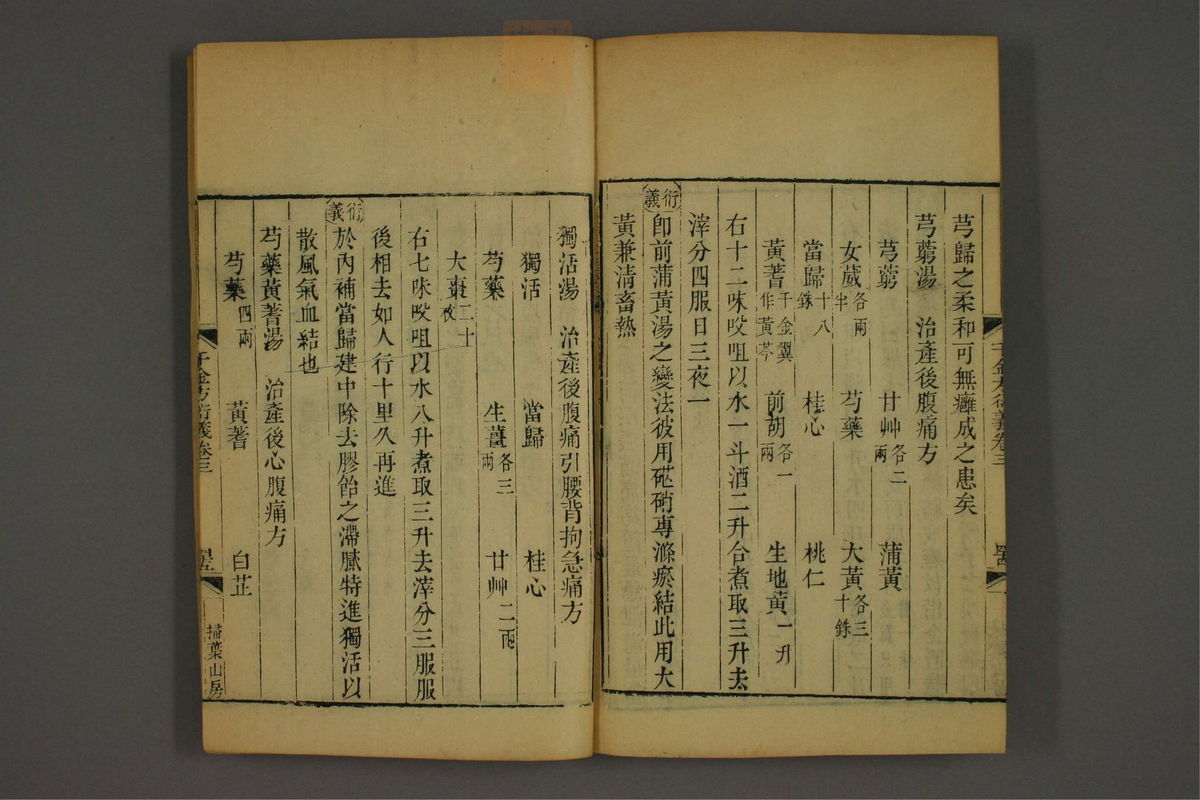 芎歸之柔和可無癰成之患矣
芎藭湯　治產後腹痛方
芎藭　甘艸各二兩　蒲黃
女葳各兩半　芍藥　大黃各三十銖
當歸十八銖　桂心　桃仁
黃蓍千金翼作黃芩　前胡各一兩　生地黃一升
右十二味㕮咀以水一斗酒二升合煮取三升去
滓分四服日三夜一
衍義 卽前蒲黃湯之變法彼用硭硝專滌瘀結此用大
黃兼淸畜熱
千金方衍義卷三　
獨活湯　治產後腹痛引腰背拘急痛方
獨活　當歸　桂心
芍藥　生薑各三兩　甘艸二兩
大棗二十枚
右七味㕮咀以水八升煮取三升去滓分三服服
後相去如人行十里久再進
衍義 於內補當歸建中除去膠飴之滯膩特進獨活以
散風氣血結也
芍藥黃蓍湯　治產後心腹痛方
芍藥四兩　黃蓍　白芷
千金方衍義卷三　
掃葉山房